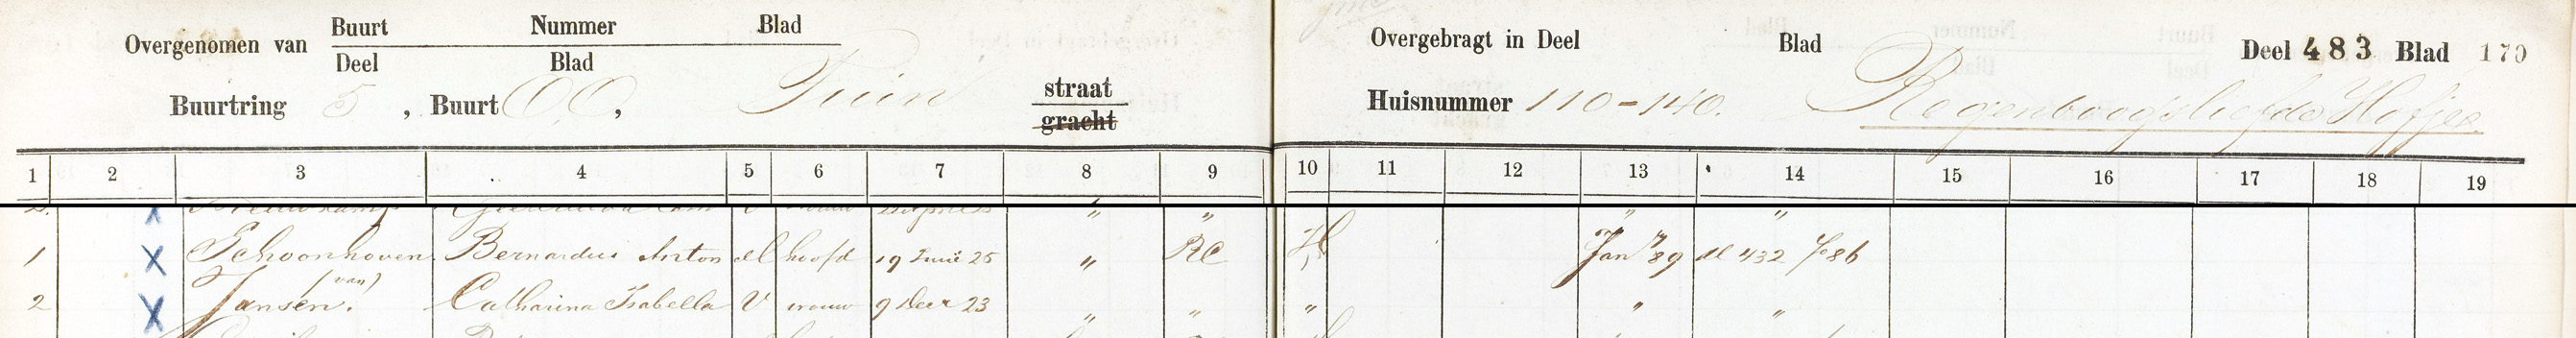 Buurt Nummer Blad
Overgenomen van
Deel Blad
Buurtring 5, Buurt OO, Tuin straat
gracht
Overgebragt in Deel Blad Deel 483 Blad 170
Huisnummer 110-140. Regenboogsliefde Hofje
1 2 3 4 5 6 7 8 9 10 11 12 13 14 15 16 17 18 19
" " " "
1 X Schoonhoven Bernardus Anton M hoofd 19 Junij 25 " RC Jan'y 89 dl 432 fo 86
(van)
2 X Jansen. Catharina Isabella V vrouw 9 Decr 23 " " " " "